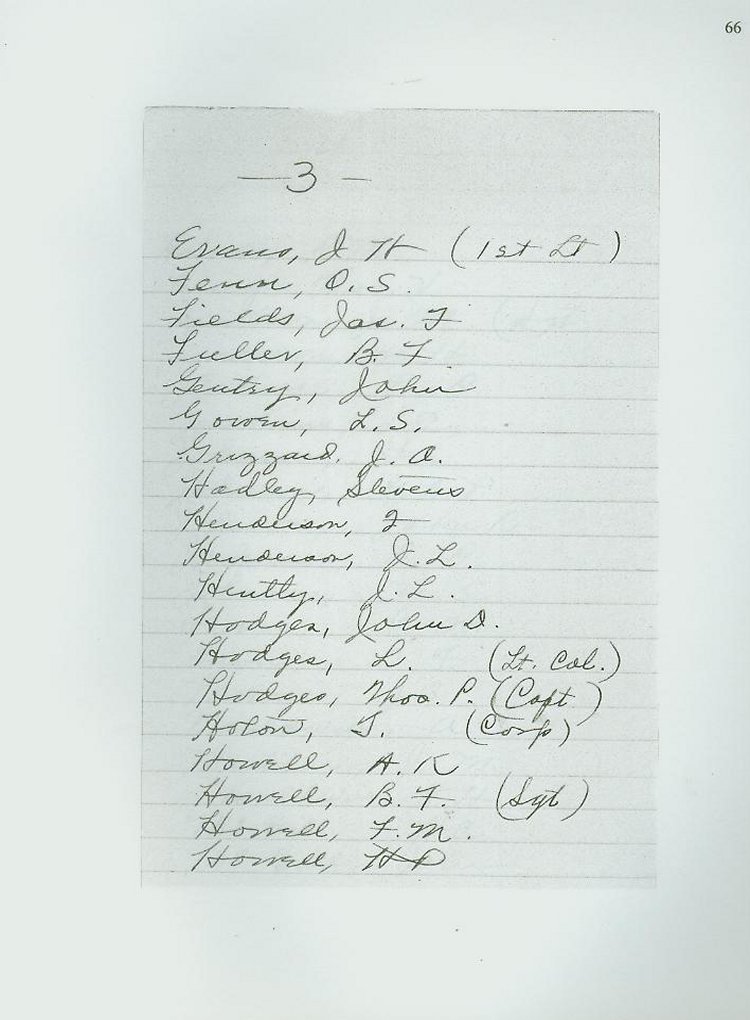 66
—3—
Evans, J H (1st Lt)
Fenn, O. S.
Fields, Jas. F
Fuller, B. F
Gentry, John
Gowen, L. S.
Grizzard, J. O.
Hadley, Stevens
Henderson, F
Henderson, J. L.
Huntly, J. L.
Hodges, John D.
Hodges, L. (Lt. Col.)
Hodges, Thos. P. (Capt)
Holon, T. (Corp)
Howell, A. K
Howell, B. F. (Sgt)
Howell, F. M.
Howell, H P